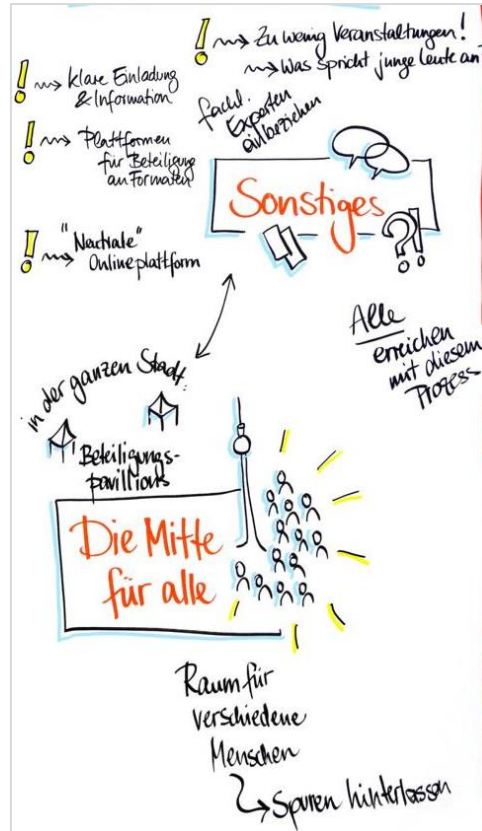 ! ⇝ Zu wenig Veranstaltungen!
⇝ Was spricht junge Leute an
! ⇝ klare Einladung
& Information
! ⇝ Plattformen
für Beteiligung
an Formaten
fachl.
Experten
einbeziehen
Sonstiges
?!
! ⇝ "Neutrale"
Onlineplattform
Alle
erreichen
mit diesem
Prozess
in der ganzen Stadt:
Beteiligungs-
pavillions
Die Mitte
für alle
Raum für
verschiedene
Menschen
↳ Spuren hinterlassen